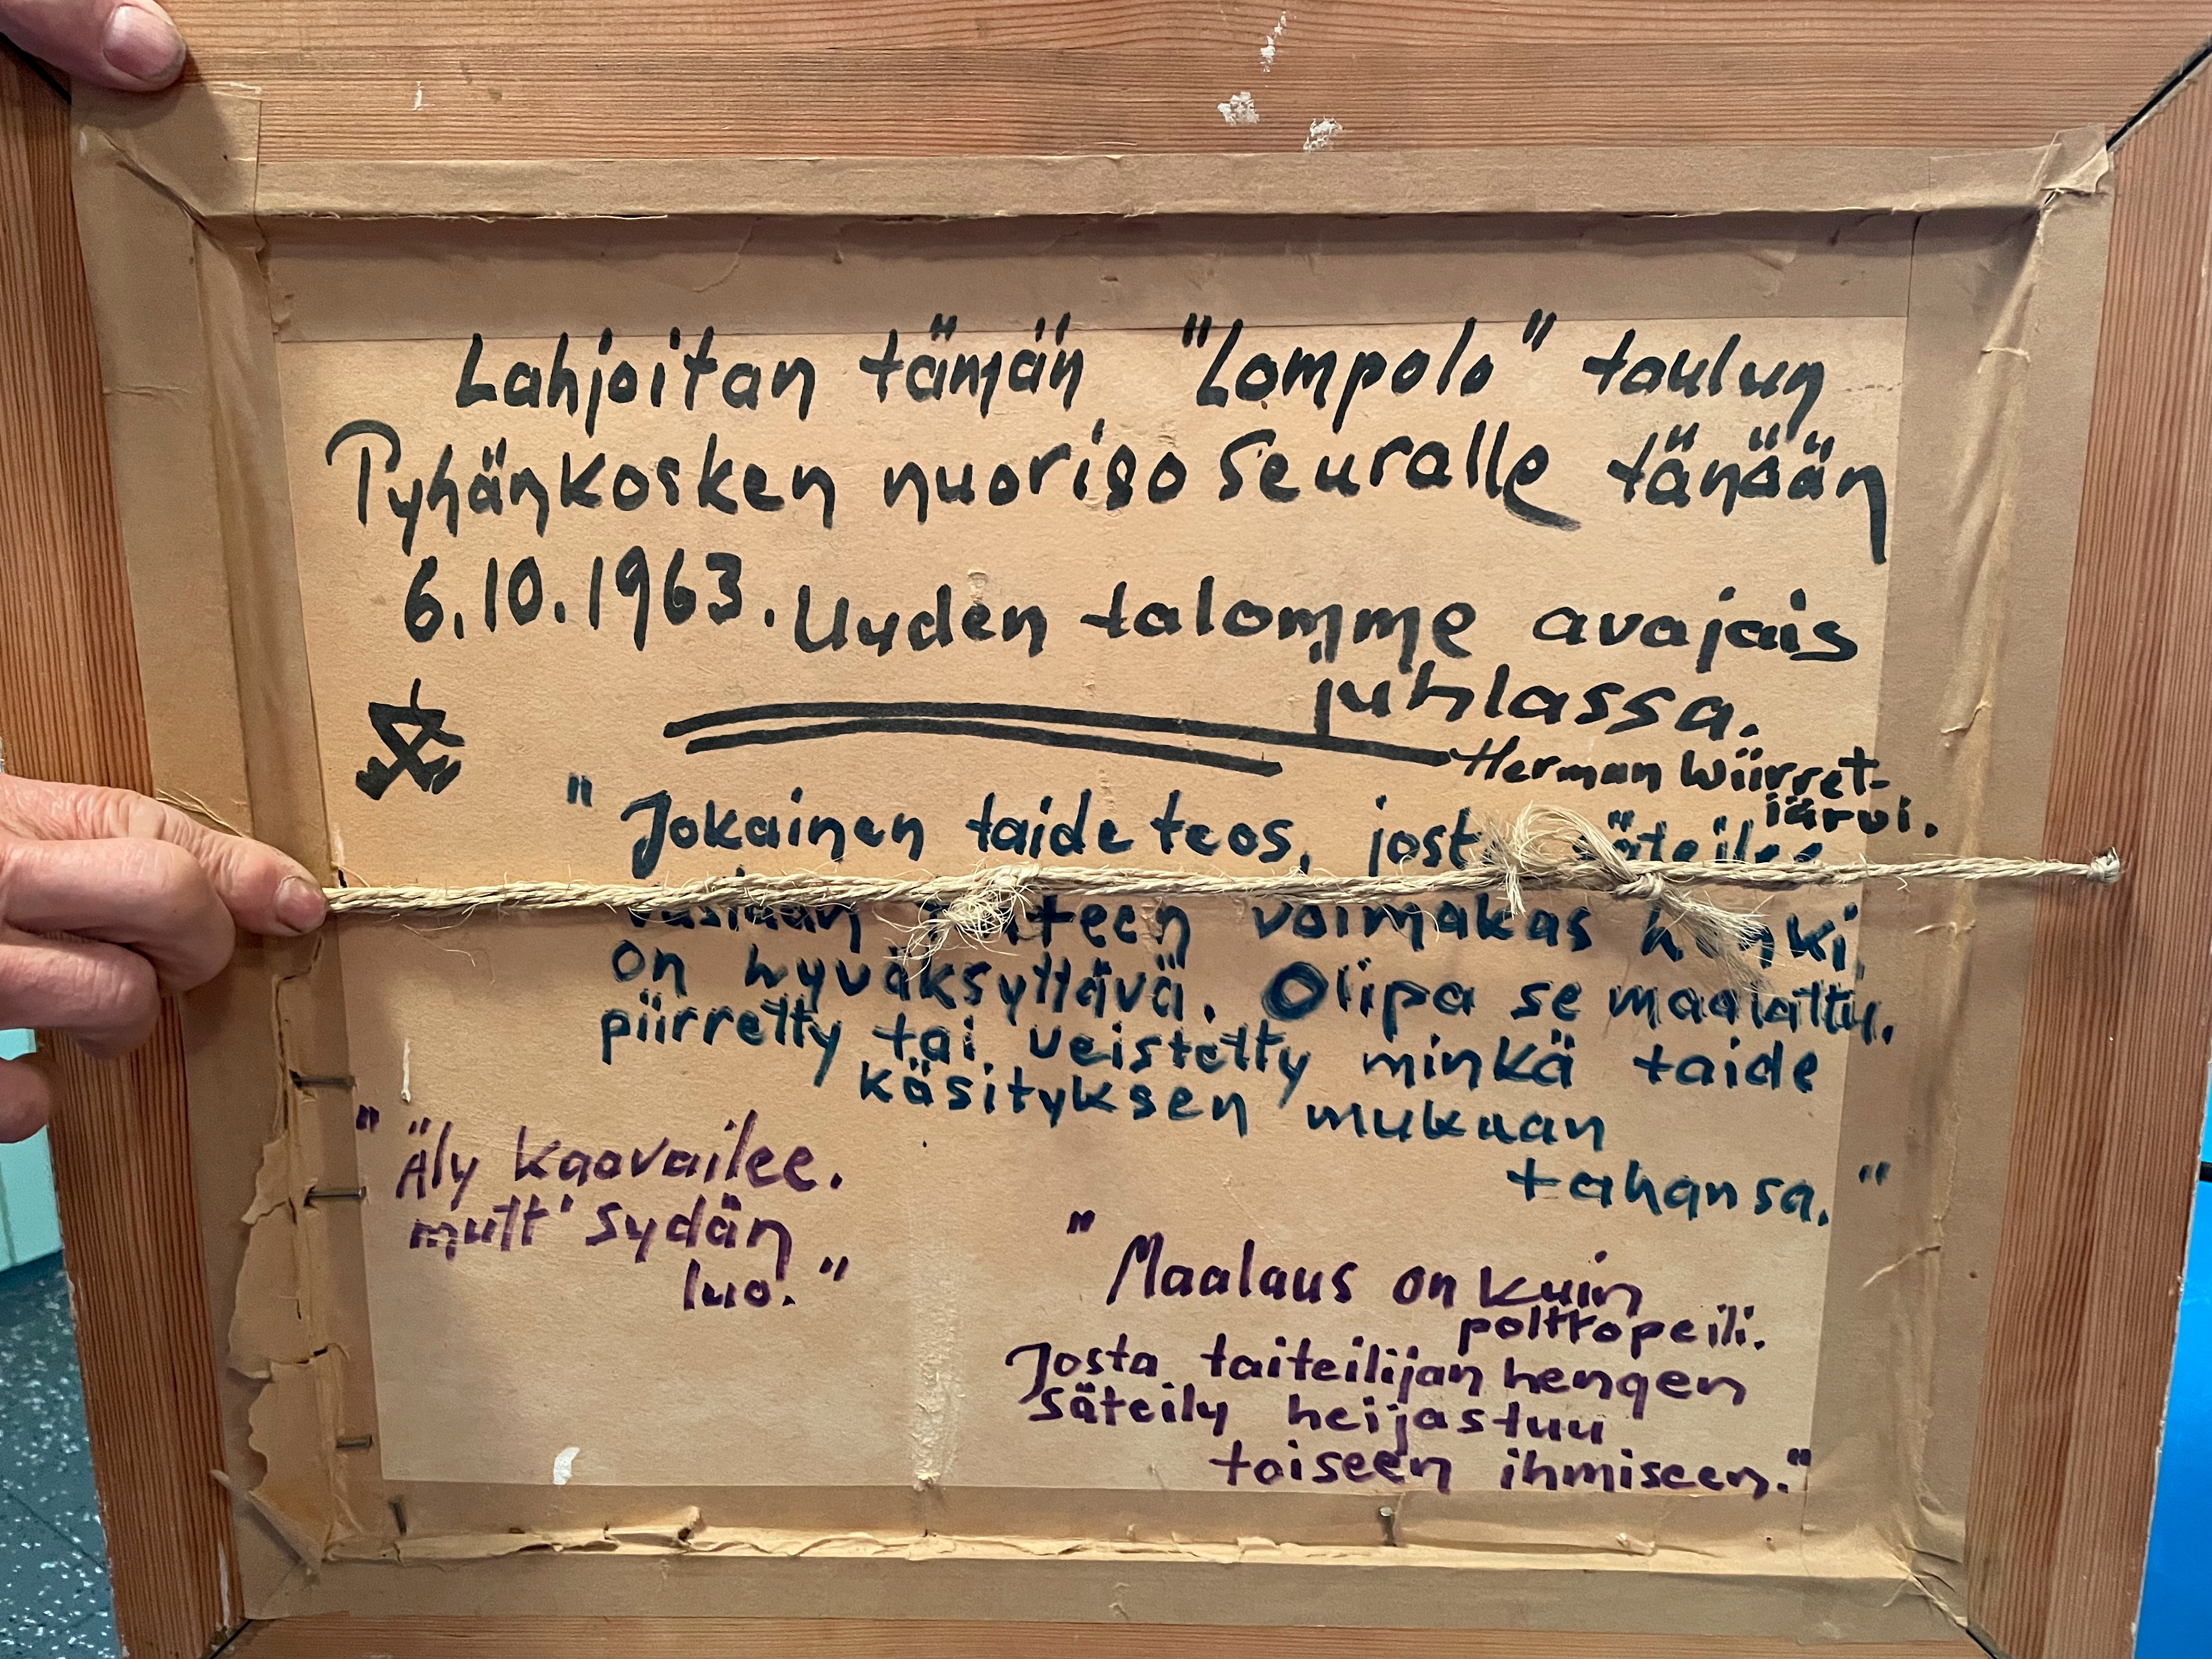 Lahjoitan tämän "Lompolo" taulun
Pyhänkosken nuoriso seuralle tänään
6.10.1963. Uuden talomme avajais
juhlassa.
Herman Wiirret-
järvi.
"Jokainen taide teos, josta säteilee
voimakas henki,
on hyväksyttävä. Olipa se maalattu,
piirretty tai veistetty minkä taide
käsityksen mukaan
tahansa."
"Äly kaavailee.
mutt' sydän
luo."
"Maalaus on kuin
polttopeili.
Josta taiteilijan hengen
säteily heijastuu
toiseen ihmiseen."